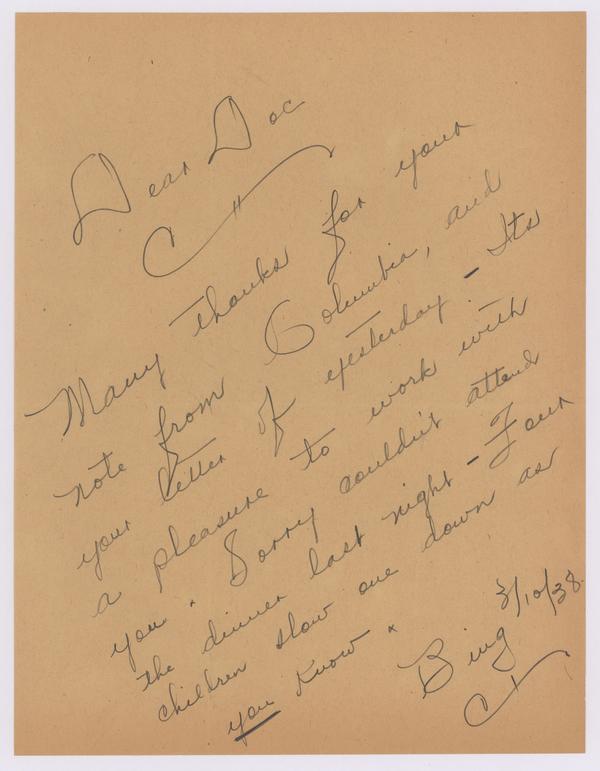 Dear Doc
Many thanks for your
note from Columbia, and
your letter of yesterday - Its
a pleasure to work with
you. Sorry couldn't attend
the dinner last night - Four
children slow one down as
you know.
3/10/38
Bing